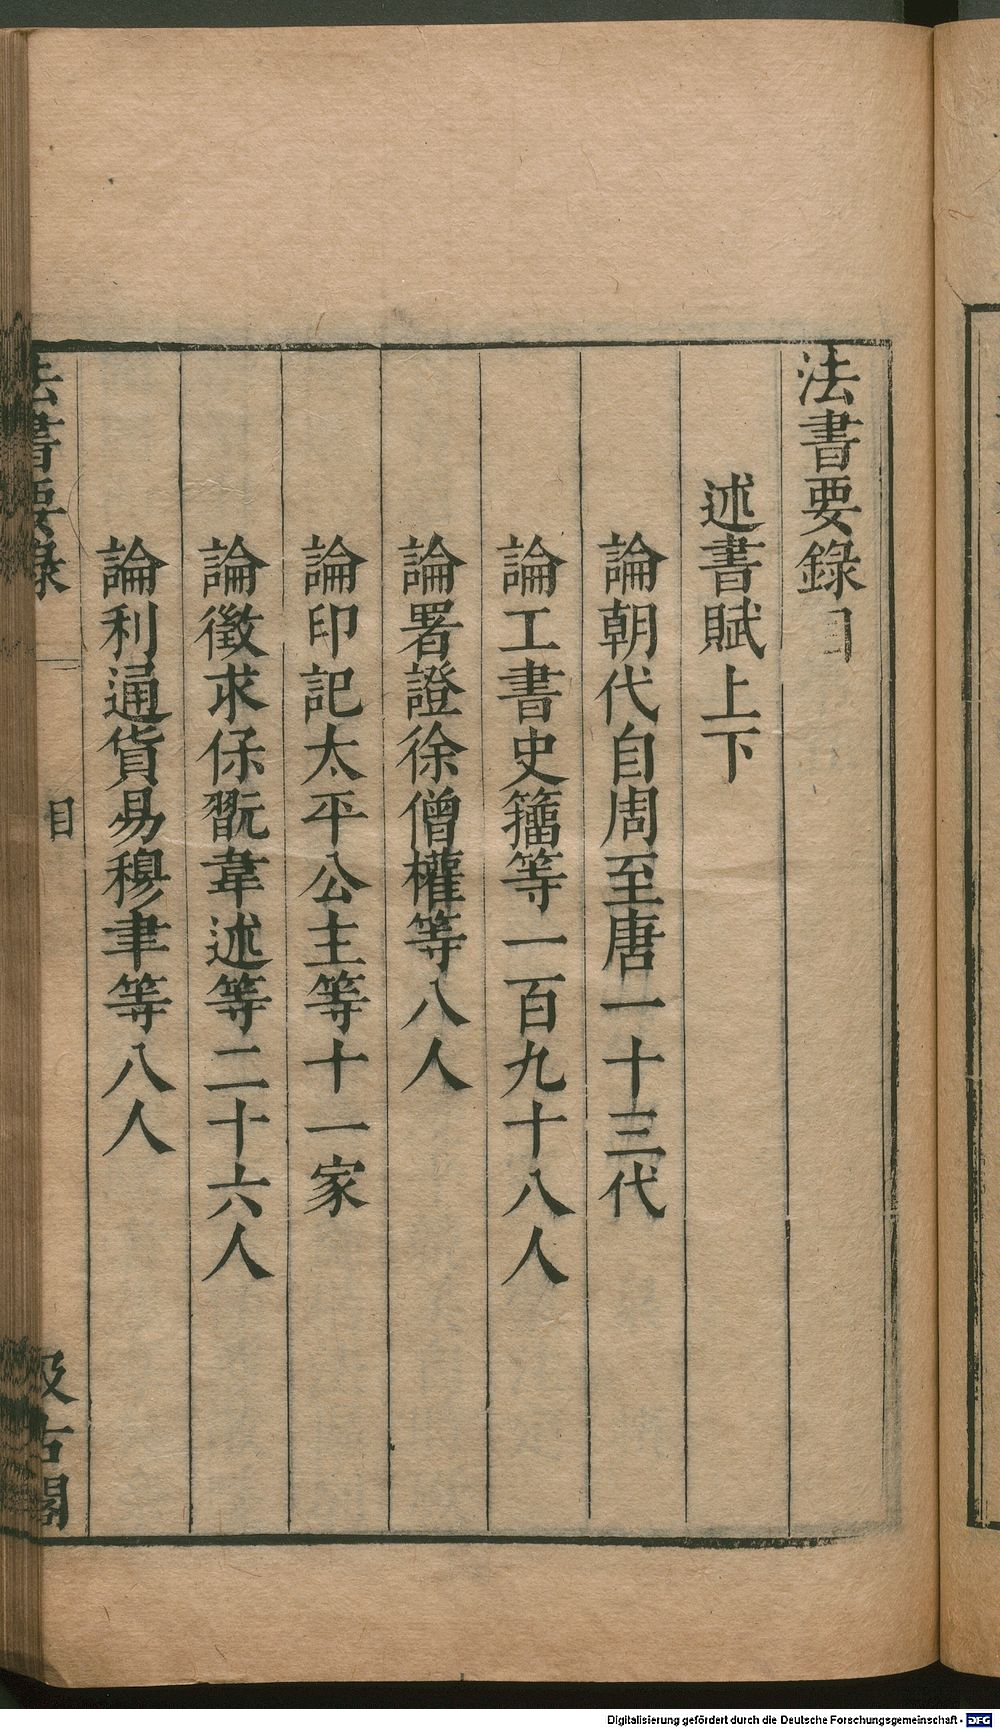 法書要錄目
述書賦上下
論朝代自周至唐一十三代
論工書史籒等一百九十八人
論署證徐僧權等八人
論印記太平公主等十一家
論徵求保翫韋述等二十六人
論利通貨易穆聿等八人
法書要錄
目
汲古閣
Digitalisierung gefördert durch die Deutsche Forschungsgemeinschaft - DFG